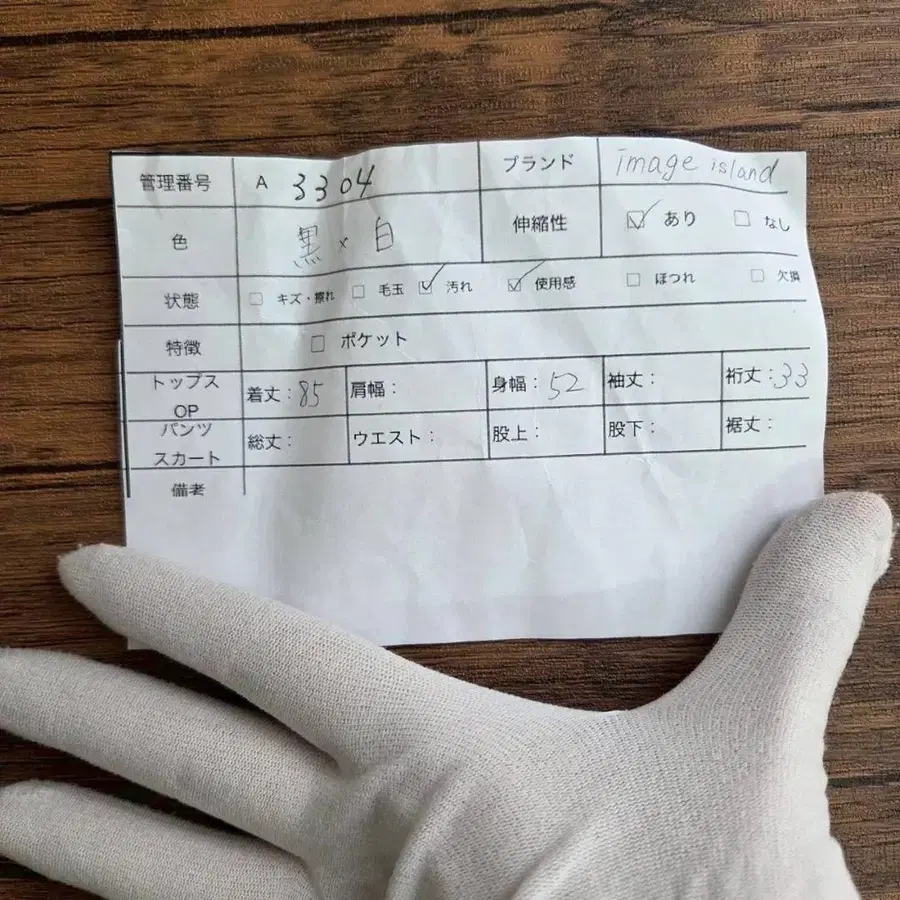 管理番号 A 3304 ブランド image island
色 黒×白 伸縮性 ☑ あり ☐ なし
状態 ☐ キズ・擦れ ☐ 毛玉 ☑ 汚れ ☑ 使用感 ☐ ほつれ ☐ 欠損
特徴 ☐ ポケット
トップス OP 着丈:85 肩幅: 身幅:52 袖丈: 裄丈:33
パンツ スカート 総丈: ウエスト: 股上: 股下: 裾丈:
備考